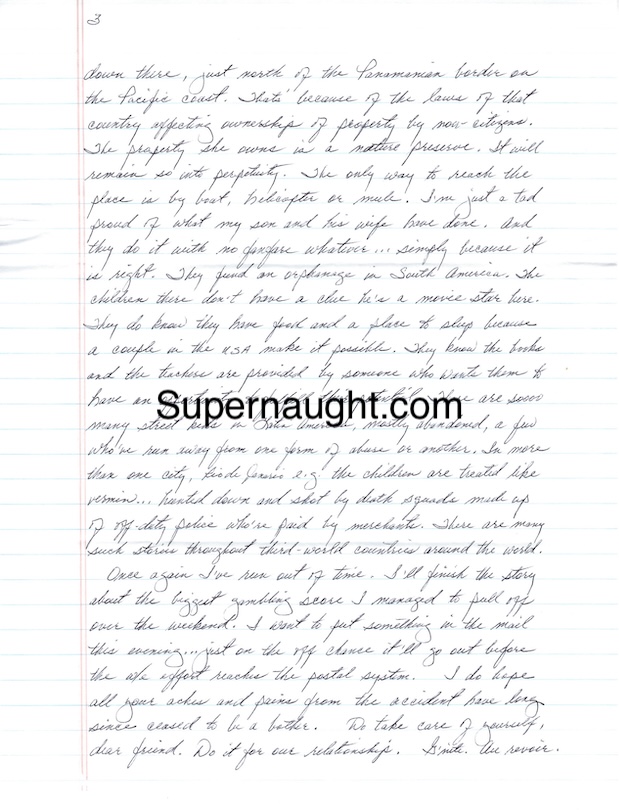 3
down there, just north of the Panamanian border on
the Pacific coast. Thats' because of the laws of that
country affecting ownership of property by non-citizens.
The property she owns is a nature preserve. It will
remain so into perpetuity. The only way to reach the
place is by boat, helicopter or mule. I'm just a tad
proud of what my son and his wife have done. And
they do it with no fanfare whatever... simply because it
is right. They fund an orphanage in South America. The
children there don't have a clue he's a movie star here.
They do know they have food and a place to sleep because
a couple in the USA make it possible. They know the books
and the teachers are provided by someone who wants them to
have an are sooo
Supernaught.com
many street kids in Latin America, mostly abandoned, a few
who've run away from one form of abuse or another. In more
than one city, Rio de Janeiro e.g. the children are treated like
vermin... hunted down and shot by death squads made up
of off-duty police who're paid by merchants. There are many
such stories throughout third-world countries around the world.
Once again I've run out of time. I'll finish the story
about the biggest gambling score I managed to pull off
over the weekend. I want to put something in the mail
this evening... just on the off chance it'll go out before
the effort reaches the postal system. I do hope
all your aches and pains from the accident have long
since ceased to be a bother. Do take care of yourself,
dear friend. Do it for our relationship. G'nite. Au revoir.